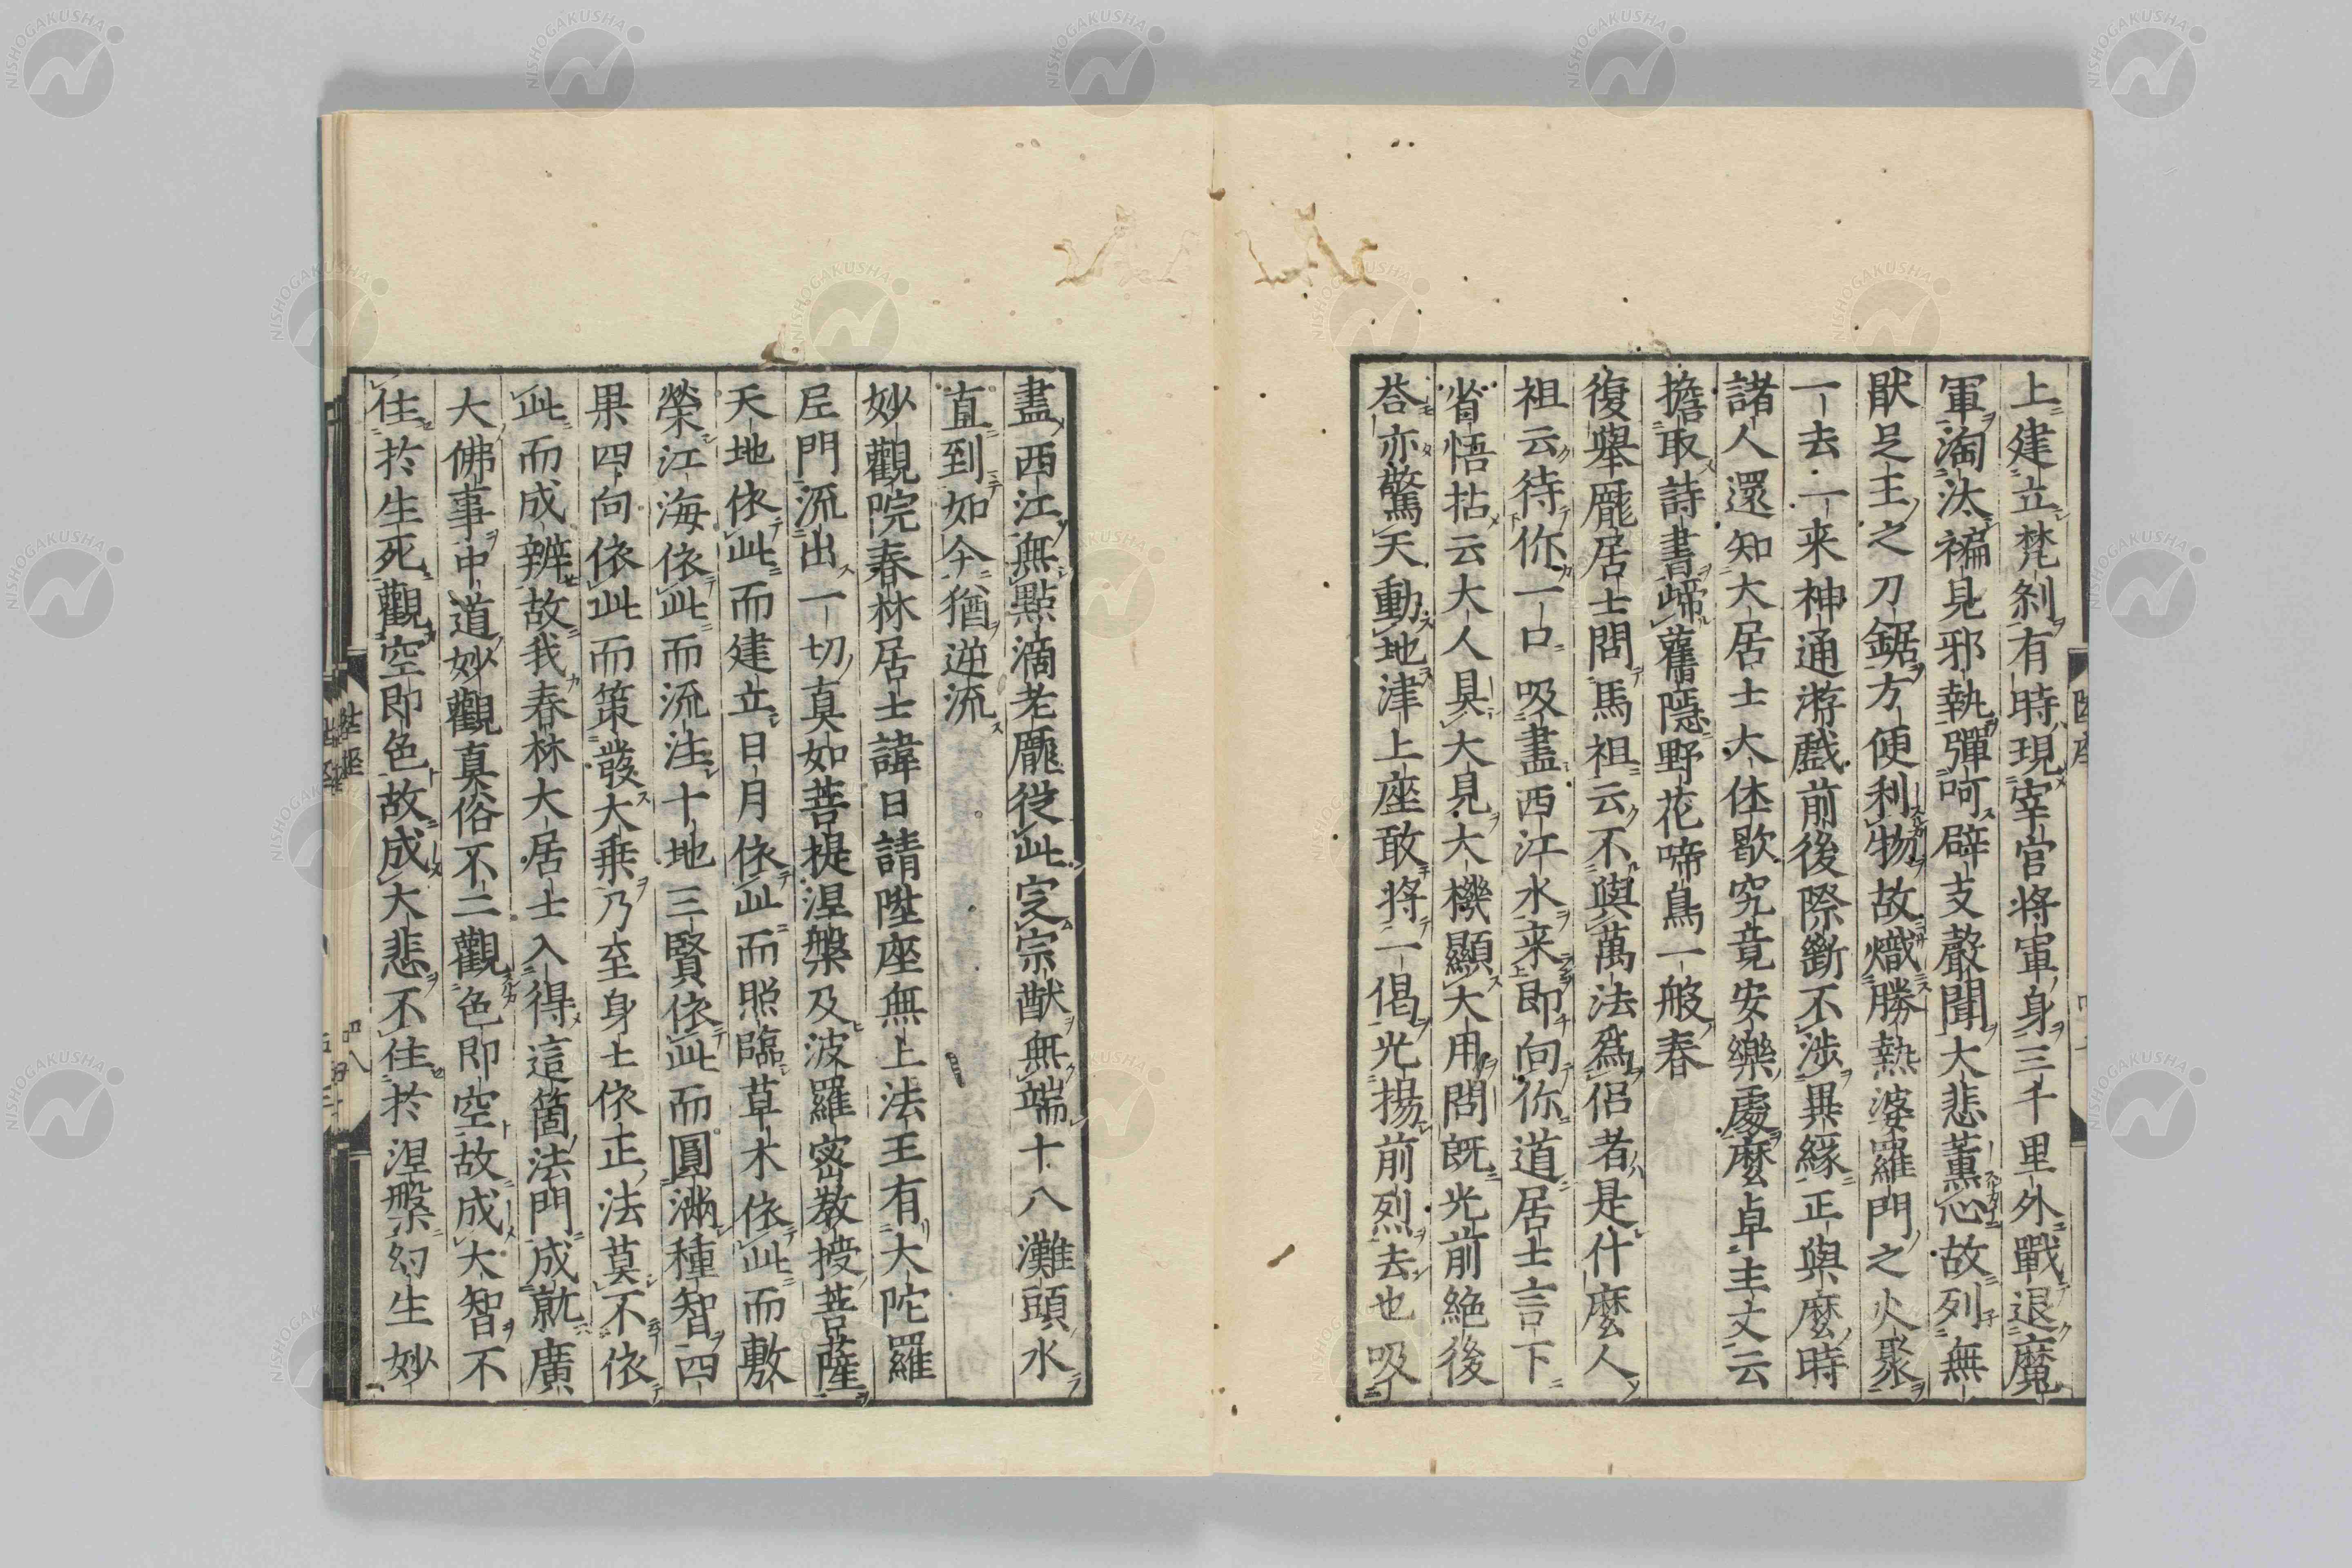 上建立梵刹有時現宰官將軍身三千里外戰退魔
軍淘汰褊見邪執彈呵辟支聲聞大悲薰心故列無
猒足王之刀鋸方便利物故熾勝熱婆羅門之火聚
一去一来神通游戲前後際斷不涉異緣正與麼時
諸人還知大居士大休歇究竟安樂處麼卓主丈云
擔取詩書歸舊隱野花啼鳥一般春
復舉龐居士問馬祖云不與萬法爲侶者是什麼人
祖云待你一口吸盡西江水来即向你道居士言下
省悟拈云大人具大見大機顯大用問既光前絕後
荅亦驚天動地津上座敢將一偈光揚前烈去也吸
盡西江無點滴老龐從此定宗猷無端十八灘頭水
直到如今猶逆流
妙觀院春林居士諱日請陞座無上法王有大陀羅
尼門流出一切真如菩提涅槃及波羅密教授菩薩
天地依此而建立日月依此而照臨草木依此而敷
榮江海依此而流注十地三賢依此而圓滿種智四
果四向依此而策發大乘乃至身土依正法莫不依
此而成辨故我春林大居士入得這箇法門成就廣
大佛事中道妙觀真俗不二觀色即空故成大智不
住於生死觀空即色故成大悲不住於涅槃幻生妙
NISHOGAKUSHA